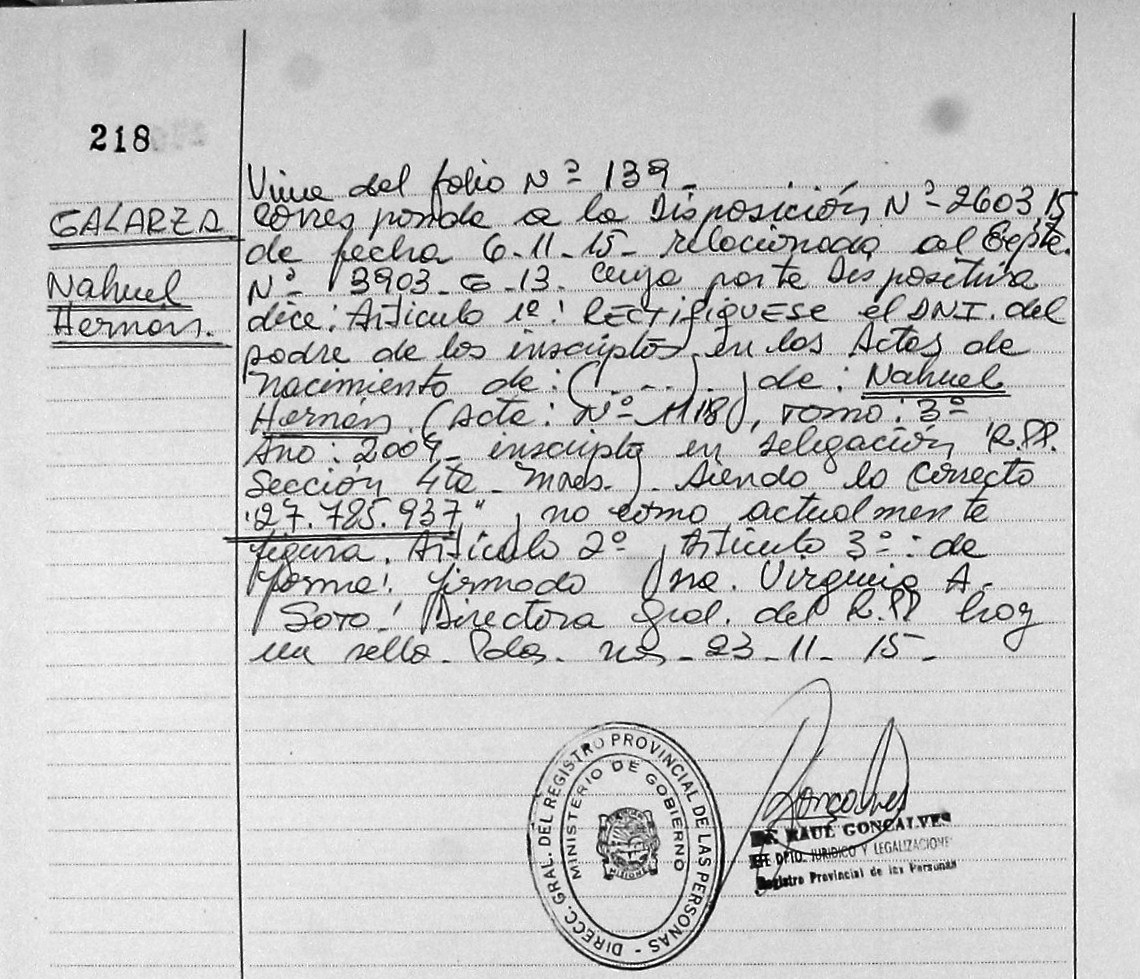 218
GALARZA
Nahuel
Hernán.
Viene del folio Nº 139_
corresponde a la Disposición Nº 2603/15
de fecha 6-11-15- relacionada al Expte.
Nº 13903-G-13. cuya parte Dispositiva
dice: Artículo 1º: RECTIFIQUESE el DNI. del
padre de los inscriptos en los Actas de
nacimiento de: (...). de: Nahuel
Hernán. (Acta: Nº 1118), Tomo: 3º
Año: 2009_ inscripto en Delegación R.PP.
Sección 4ta - Mnes.) siendo lo correcto
"27.785.937", no como actualmente
figura. Artículo 2º, Artículo 3º: de
forma: firmado Dna. Virginia A.
Soto: Directora Gral. del R.PP hay
un sello. Pdas. 23-11-15_
DIRECC. GRAL. DEL REGISTRO PROVINCIAL DE LAS PERSONAS -
MINISTERIO DE GOBIERNO
MISIONES
Gonçalves
Dr. RAUL GONÇALVES
JEFE DPTO. JURIDICO Y LEGALIZACIONES
Registro Provincial de las Personas